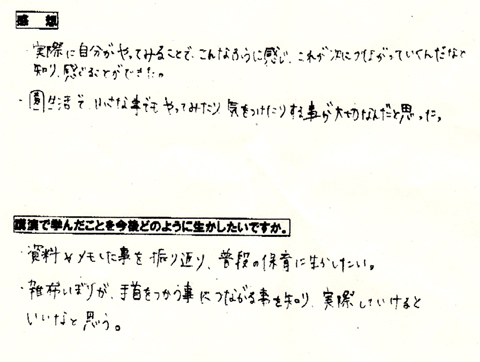 感 想
・実際に自分がやってみることで、こんなふうに感じ、これが次につながっていくんだなと
知り、感じることができた。
・園生活で、小さな事でもやってみたり、気をつけたりする事が大切なんだと思った。
講演で学んだことを今後どのように生かしたいですか。
・資料やメモした事を振り返り、普段の保育に生かしたい。
・雑巾しぼりが、手首をつかう事につながる事を知り、実際していけると
いいなと思う。